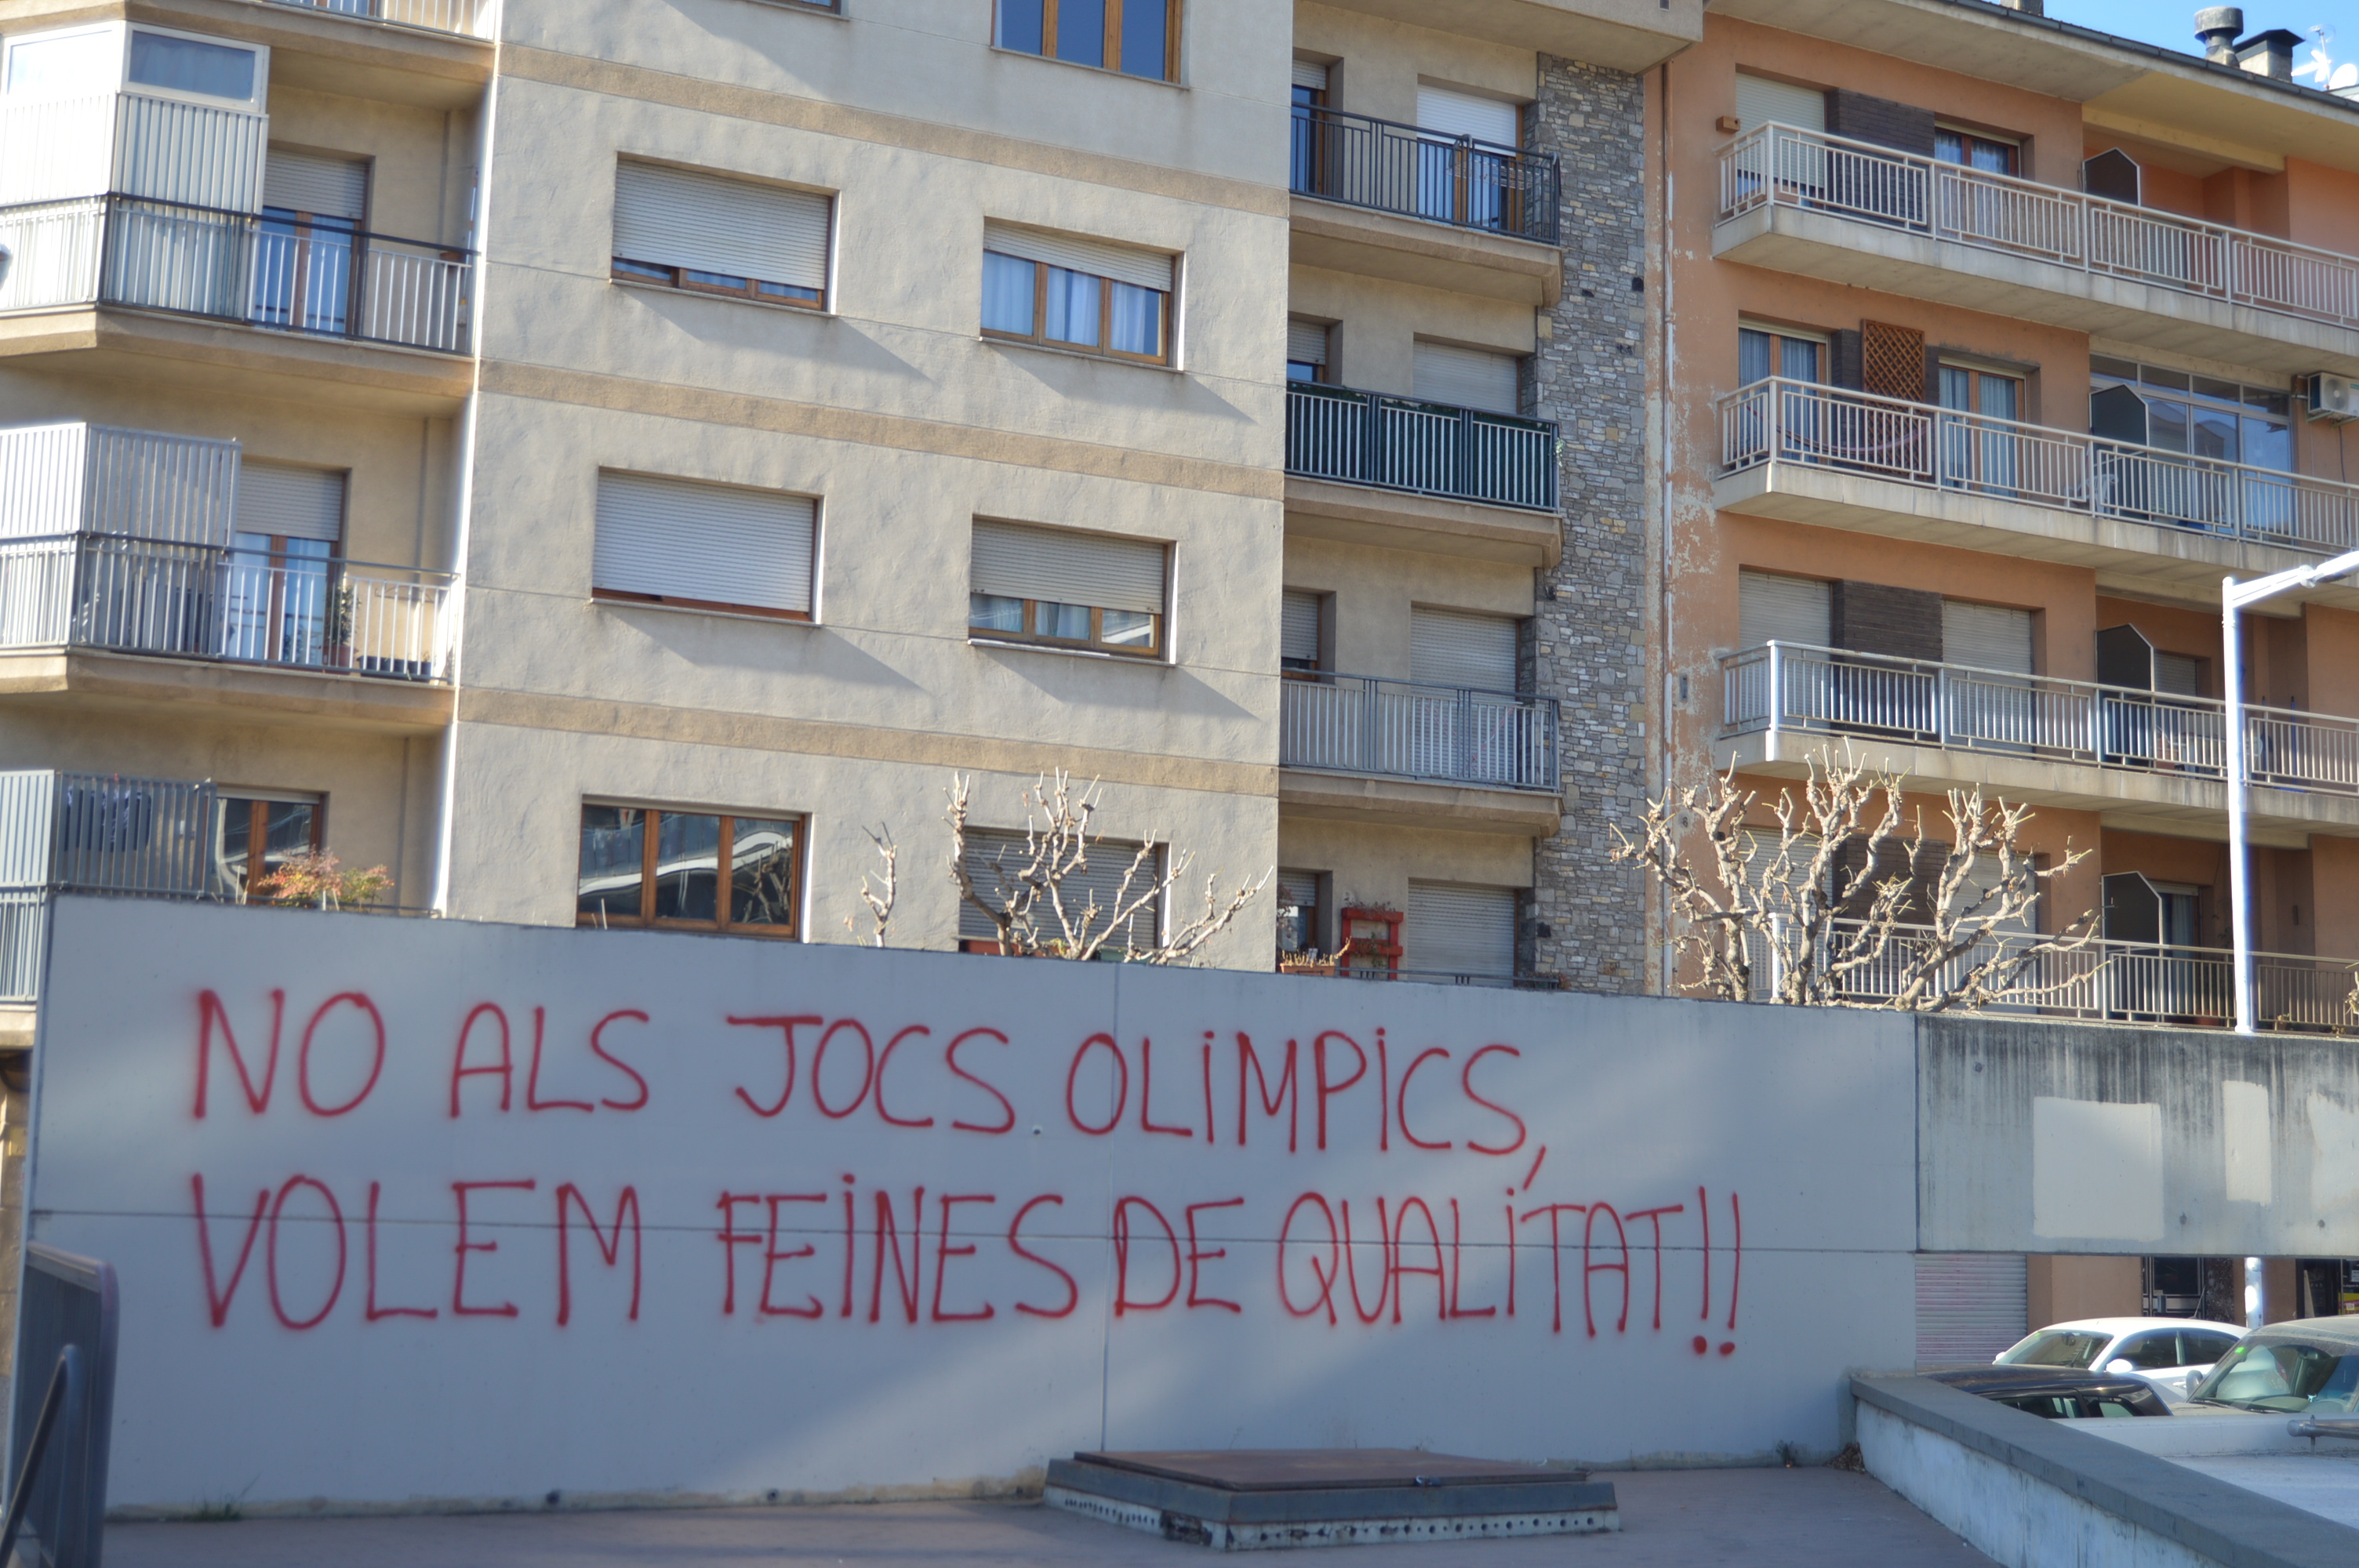 NO ALS JOCS OLIMPICS,
VOLEM FEINES DE QUALÍTAT!!